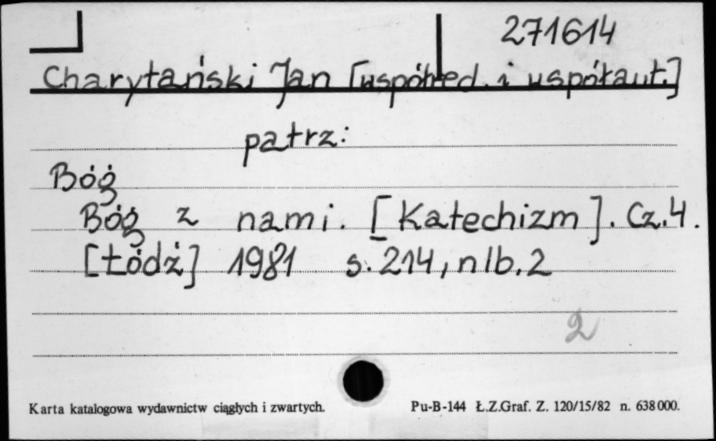 271614
Charytański Jan [współred. i współaut.]
patrz:
Bóg
Bóg z nami. [Katechizm]. Cz. 4.
[Łódź] 1981 s. 214, nlb. 2
2
Karta katalogowa wydawnictw ciągłych i zwartych. Pu-B-144 Ł.Z.Graf. Z. 120/15/82 n. 638000.